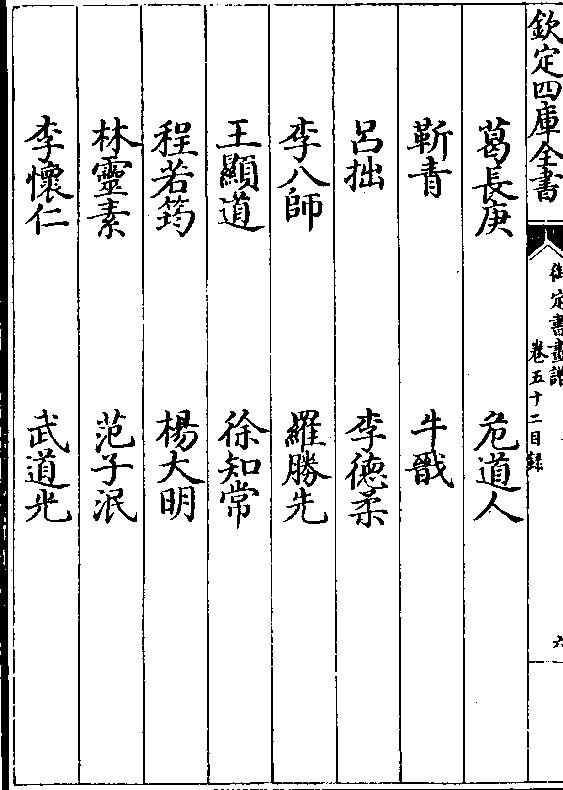 欽定四庫全書
御定書畫譜
卷五十二目錄
六
葛長庚 危道人
靳青 牛戩
呂拙 李德柔
李八師 羅勝先
王顯道 徐知常
程若筠 楊大明
林靈素 范子泯
李懷仁 武道光